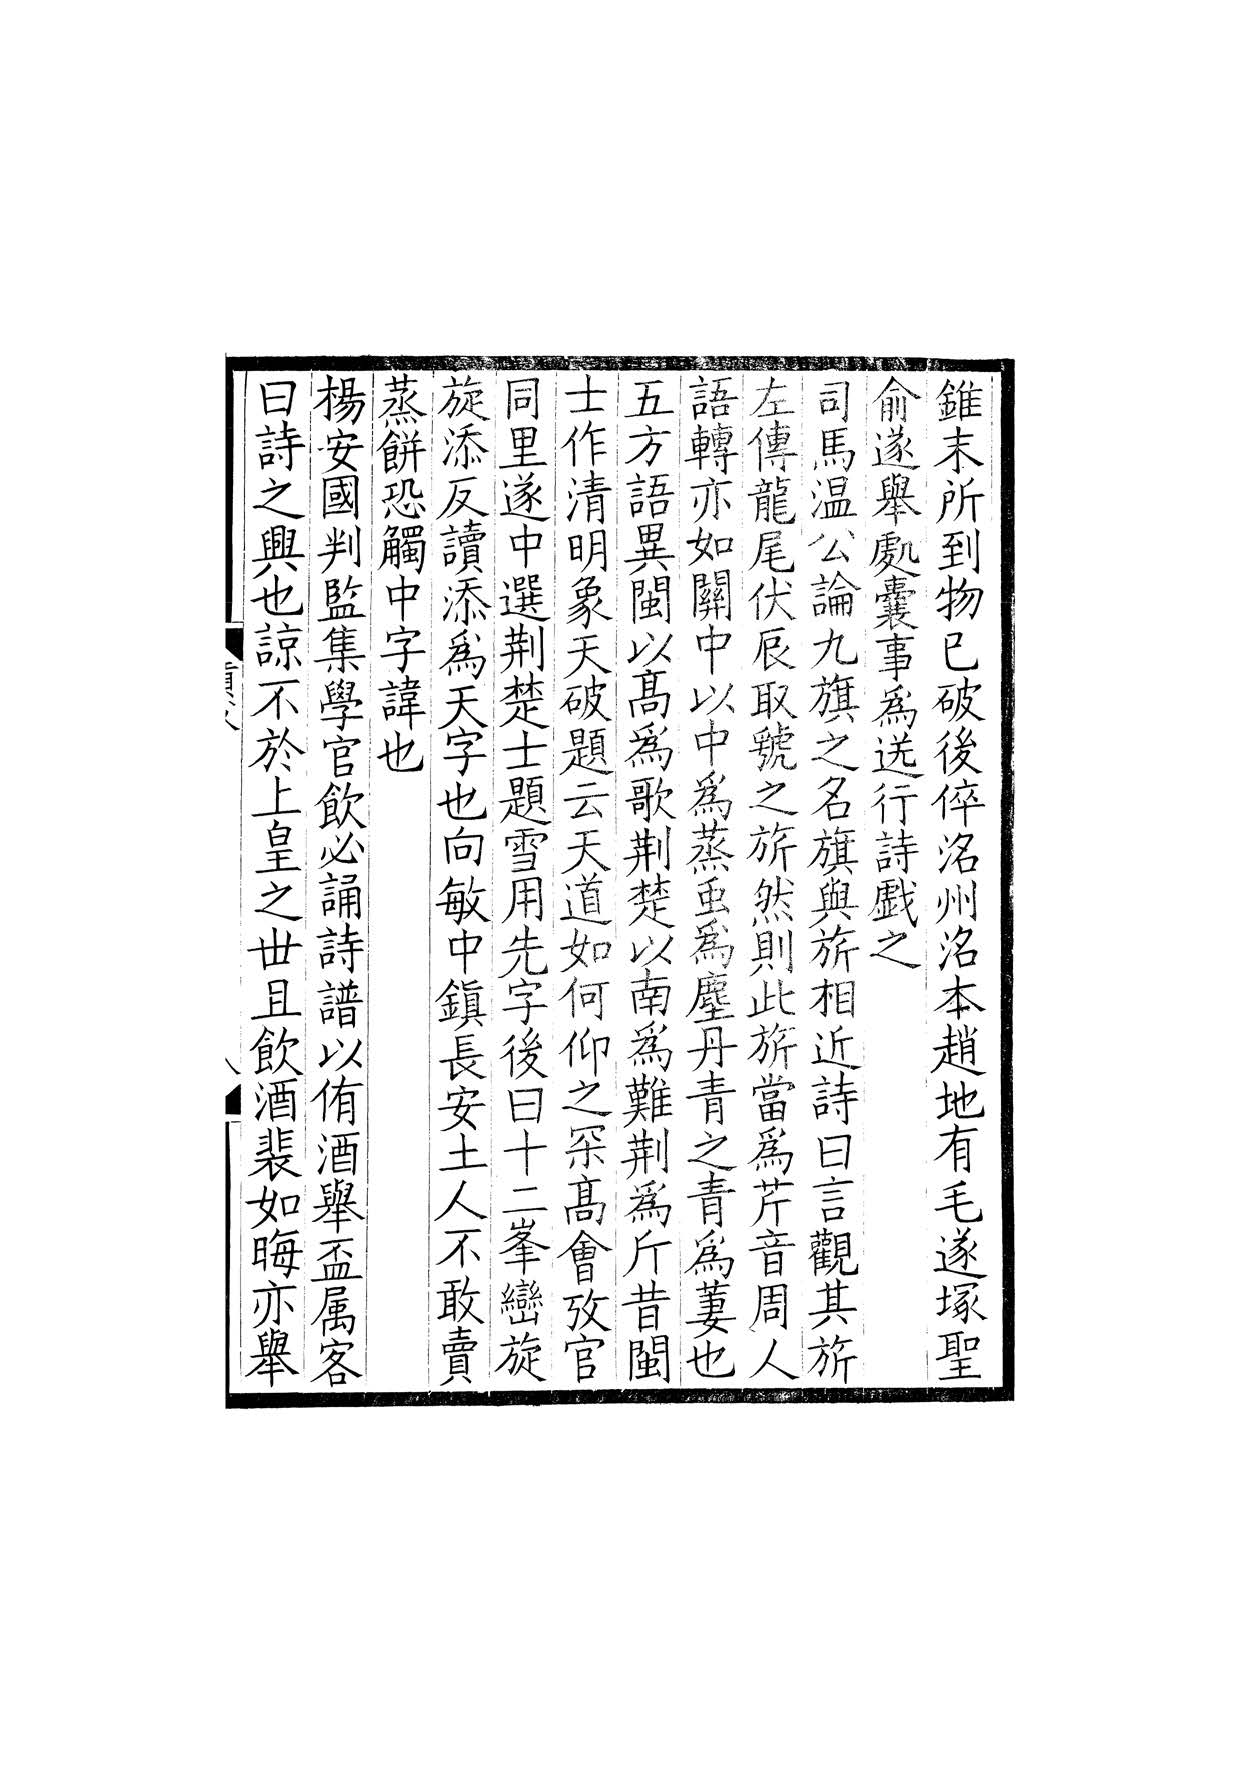 錐末所到物已破後倅洺州洺本趙地有毛遂塚聖
俞遂舉處囊事為送行詩戱之
司馬温公論九旗之名旗與旂相近詩曰言觀其旂
左傳龍尾伏辰取虢之旂然則此旂當為芹音周人
語轉亦如關中以中為蒸䖝為塵丹青之青為萋也
五方語異閩以髙為歌荆楚以南為難荆為斤昔閩
士作清明象天破題云天道如何仰之深髙會攷官
同里遂中選荆楚士題雪用先字後曰十二峯巒旋
旋添反讀添為天字也向敏中鎮長安土人不敢賣
蒸餅恐觸中字諱也
楊安國判監集學官飲必誦詩譜以侑酒舉盃属客
曰詩之興也諒不於上皇之丗且飲酒裴如晦亦舉